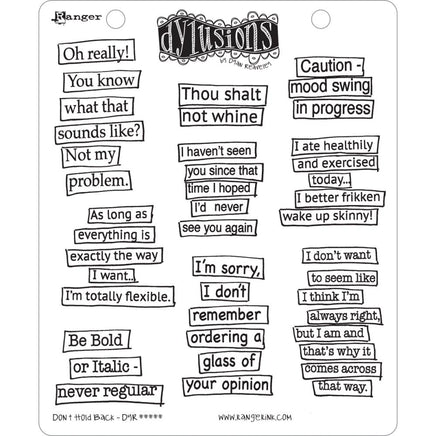 Ranger
dylusions
by Dyan Reaveley
Oh really!
You know
what that
sounds like?
Not my
problem.
As long as
everything is
exactly the way
I want..
I'm totally flexible.
Be Bold
or Italic -
never regular
Thou shalt
not whine
I haven't seen
you since that
time I hoped
I'd never
see you again
I'm sorry,
I don't
remember
ordering a
glass of
your opinion
Caution -
mood swing
in progress
I ate healthily
and exercised
today...
I better frikken
wake up skinny!
I don't want
to seem like
I think I'm
always right,
but I am and
that's why it
comes across
that way.
Don't Hold Back - DYR *****
www.rangerink.com